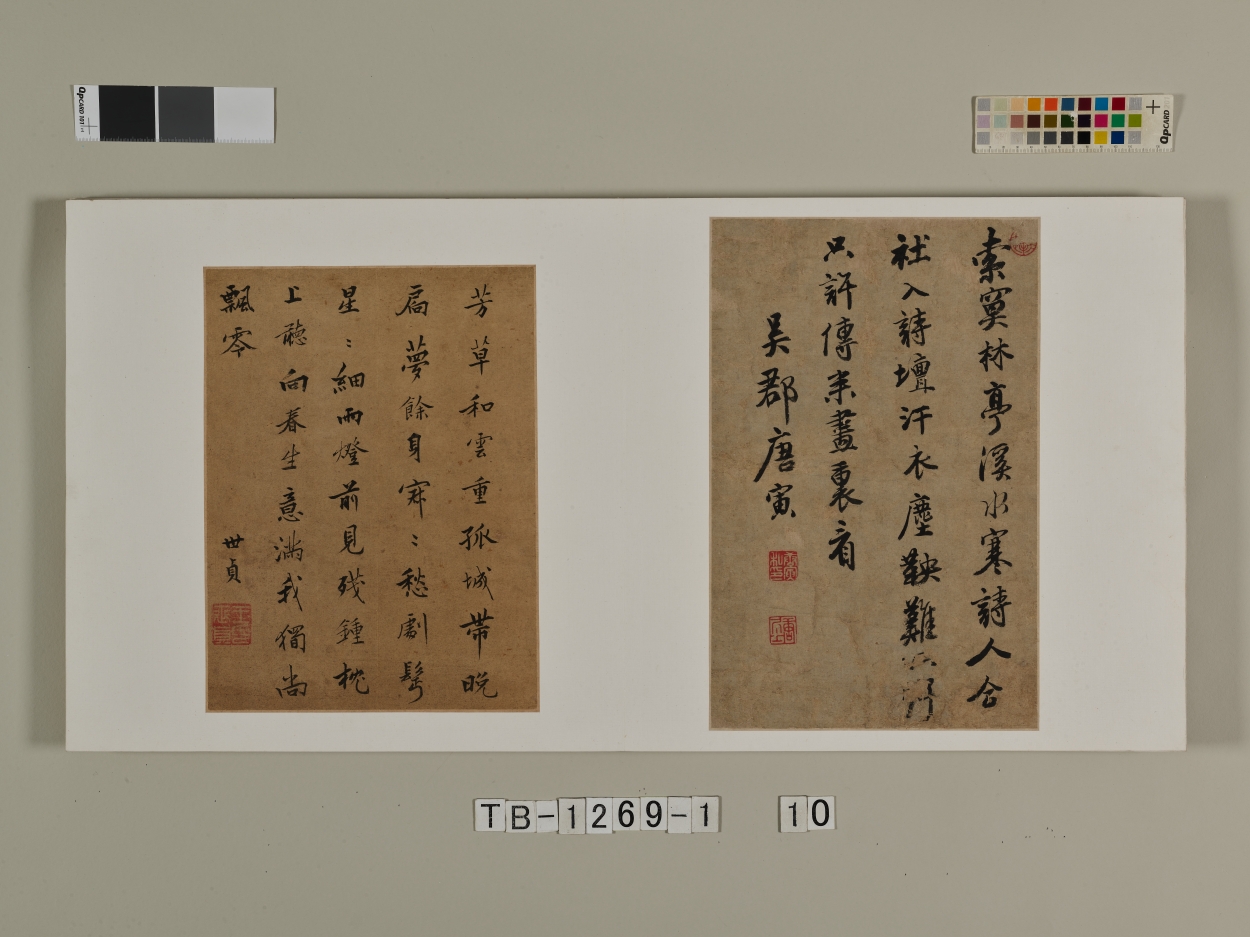 索寞林亭溪水寒詩人合
社入詩壇汗衣塵鞅難
只許傳来畫裏看
吳郡唐寅
芳草和雲重孤城帶晚
扃夢餘身寂：愁劇髩
星：細雨燈前見殘鍾枕
上聽向春生意滿我獨尚
飄零
世貞
TB-1269-1 10
QPCARD 101
QPCARD